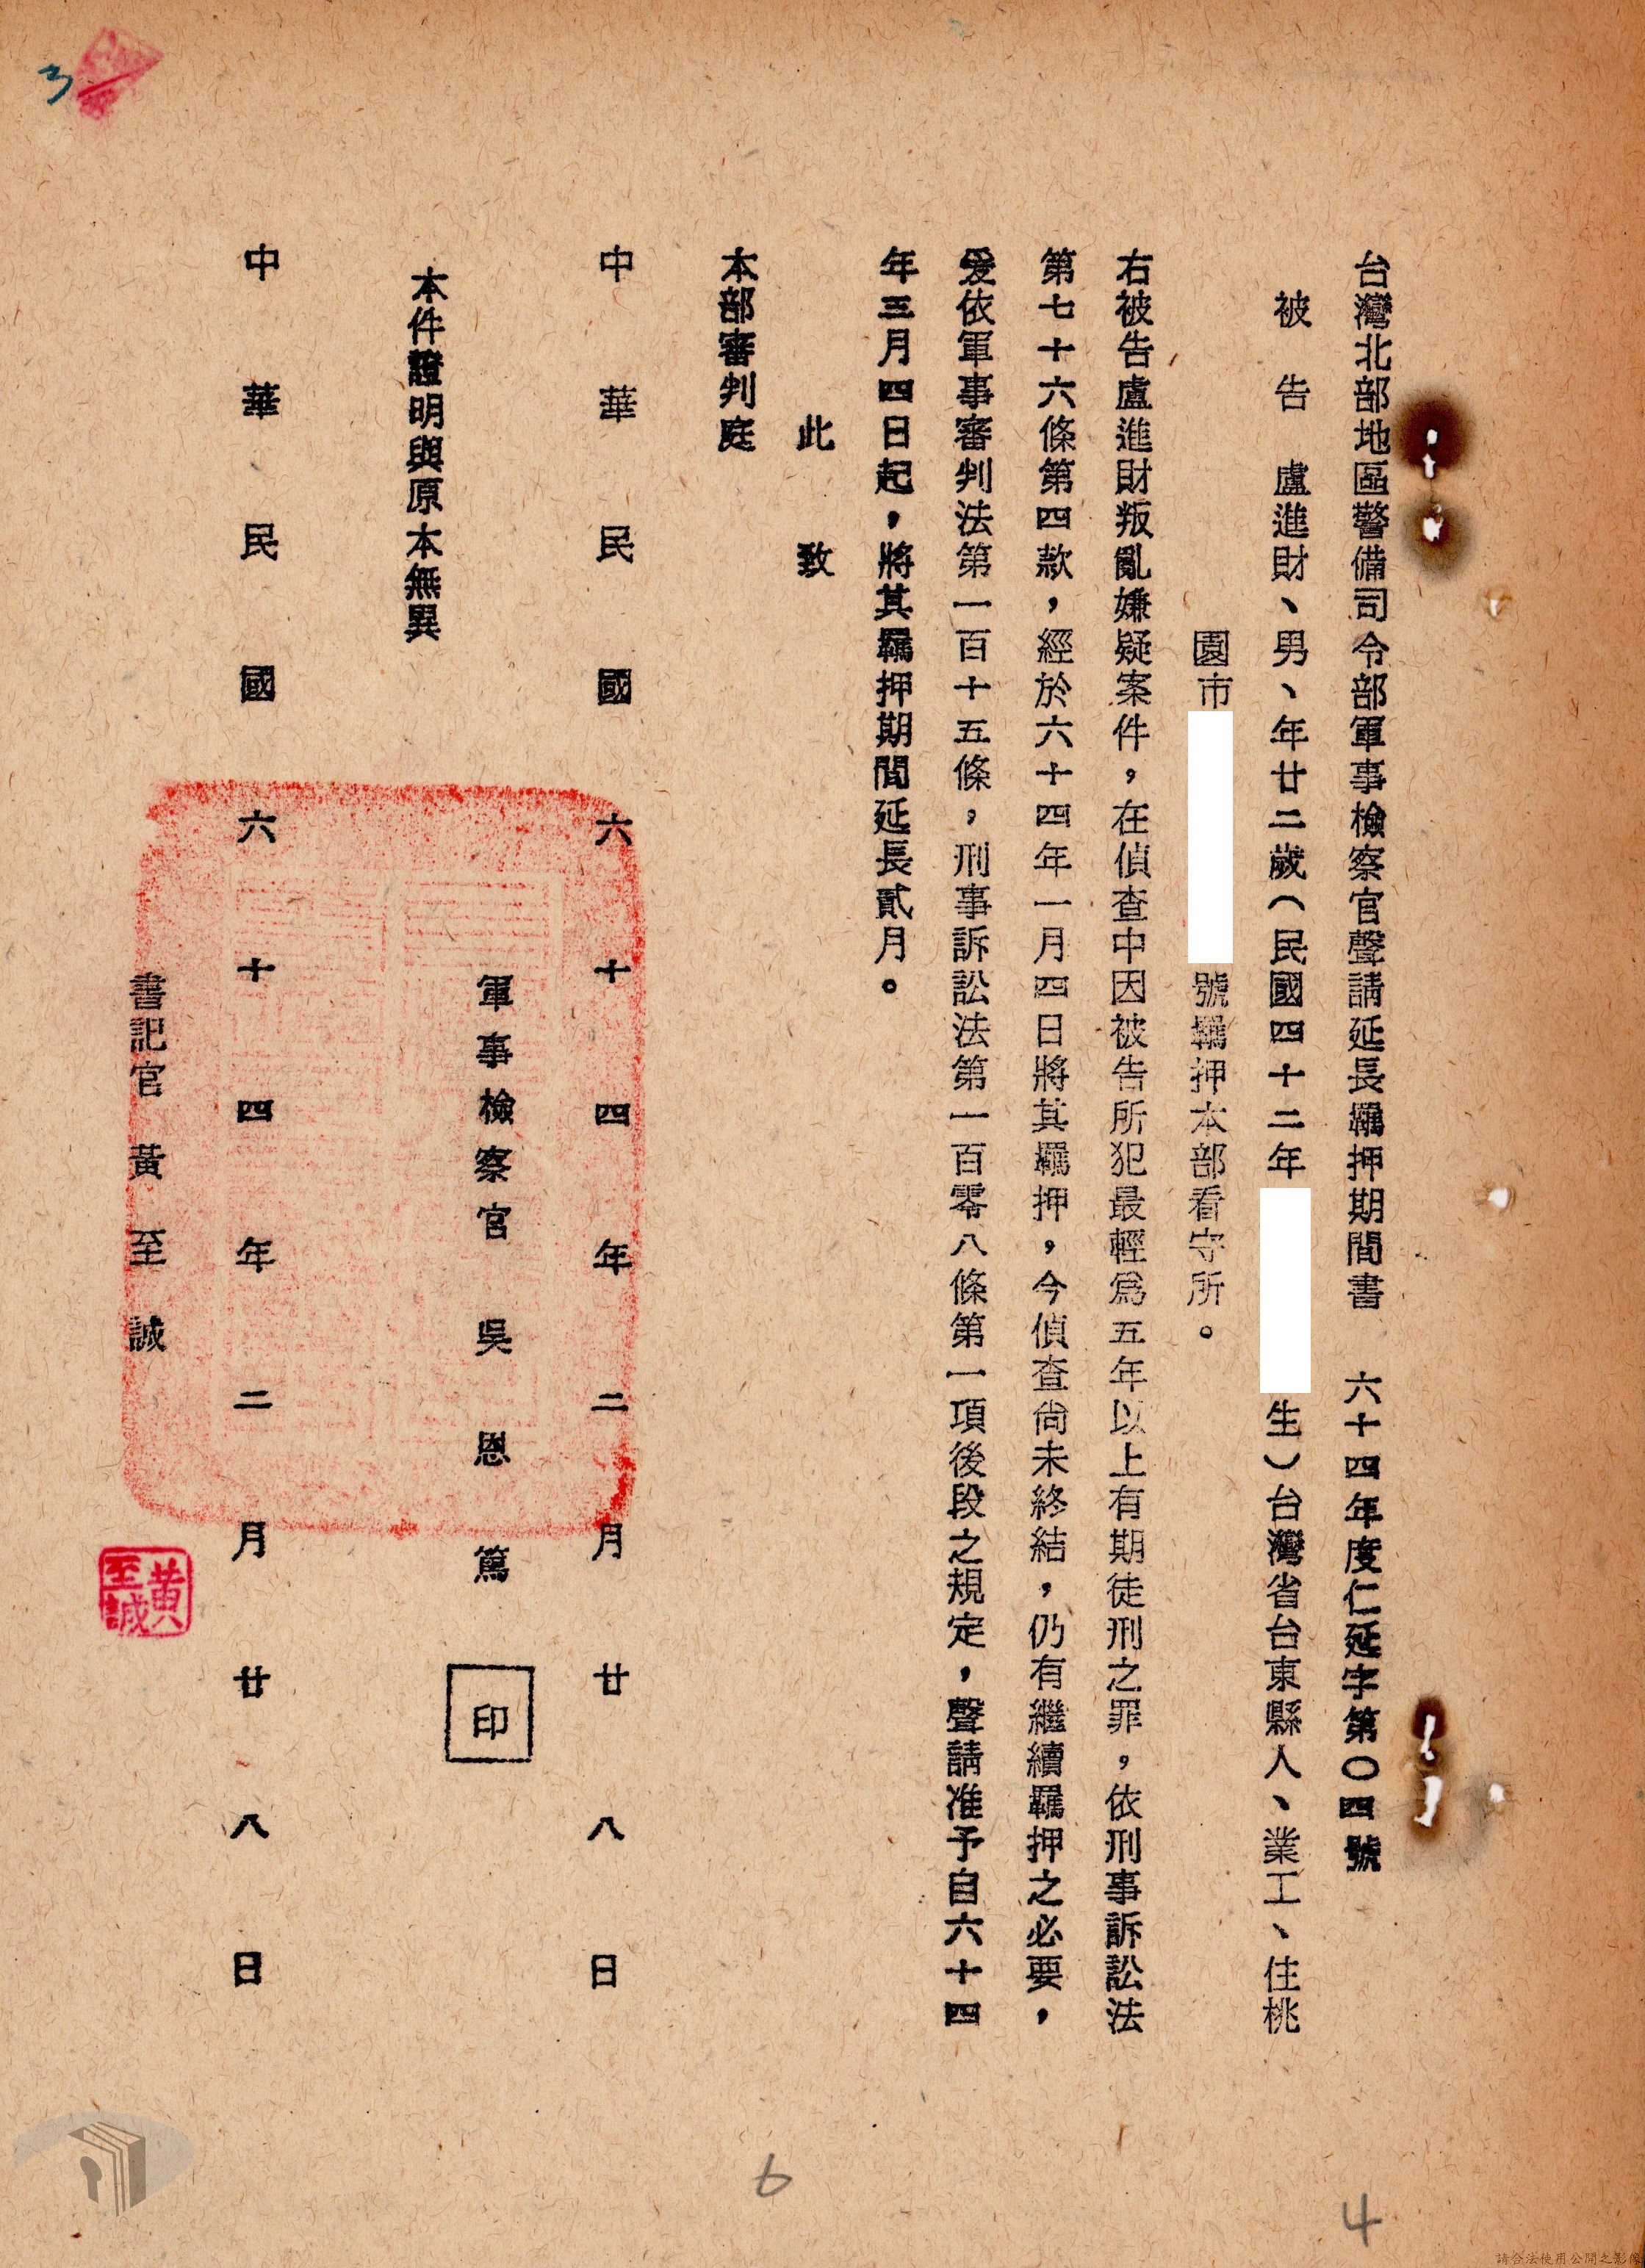 台灣北部地區警備司令部軍事檢察官聲請延長羈押期間書　六十四年度仁延字第〇四號
被告　盧進財、男、年廿二歲（民國四十二年
生）台灣省台東縣人、業工、住桃
園市
號羈押本部看守所。
右被告盧進財叛亂嫌疑案件，在偵查中因被告所犯最輕為五年以上有期徒刑之罪，依刑事訴訟法
第七十六條第四款，經於六十四年一月四日將其羈押，今偵查尚未終結，仍有繼續羈押之必要，
爰依軍事審判法第一百十五條，刑事訴訟法第一百零八條第一項後段之規定，聲請准予自六十四
年三月四日起，將其羈押期間延長貳月。
此致
本部審判庭
中華民國六十四年二月廿八日
軍事檢察官　吳恩篤　印
本件證明與原本無異
中華民國六十四年二月廿八日
書記官　黃至誠
黃至誠
3
6
4
請合法使用公開之影像